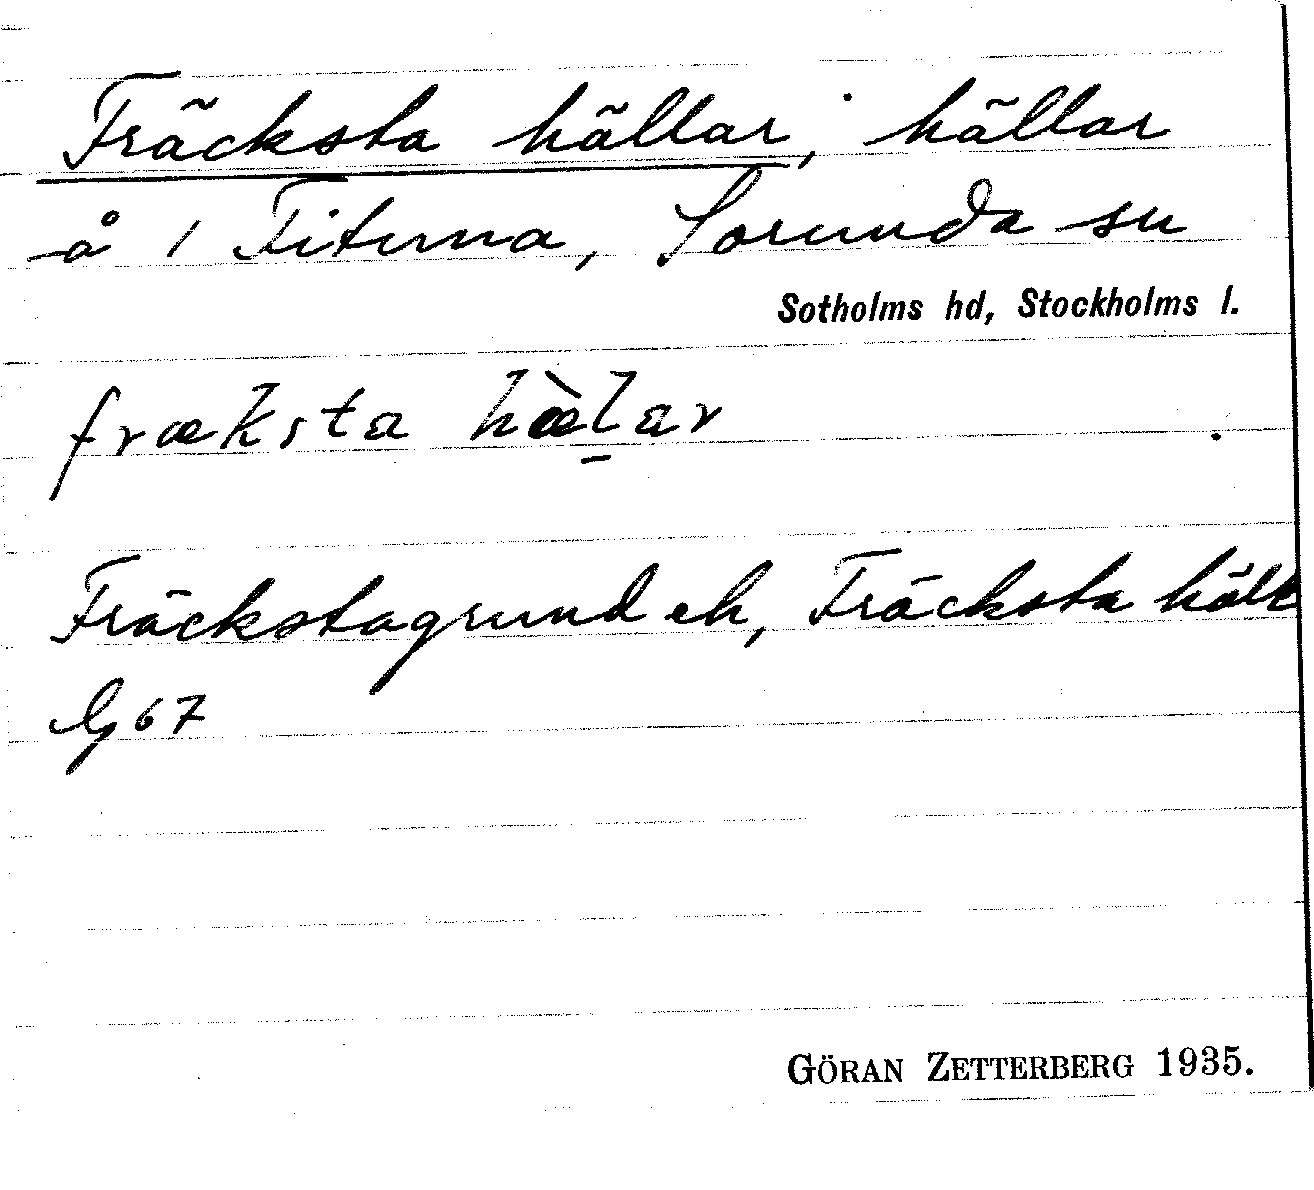 Fräcksta hällar, hällar
å 1 Fituna, Sorunda sn
Sotholms hd, Stockholms l.
fræksta hæ̀l̠ar
Fräckstagrund ek, Fräcksta häll
67
GÖRAN ZETTERBERG 1935.